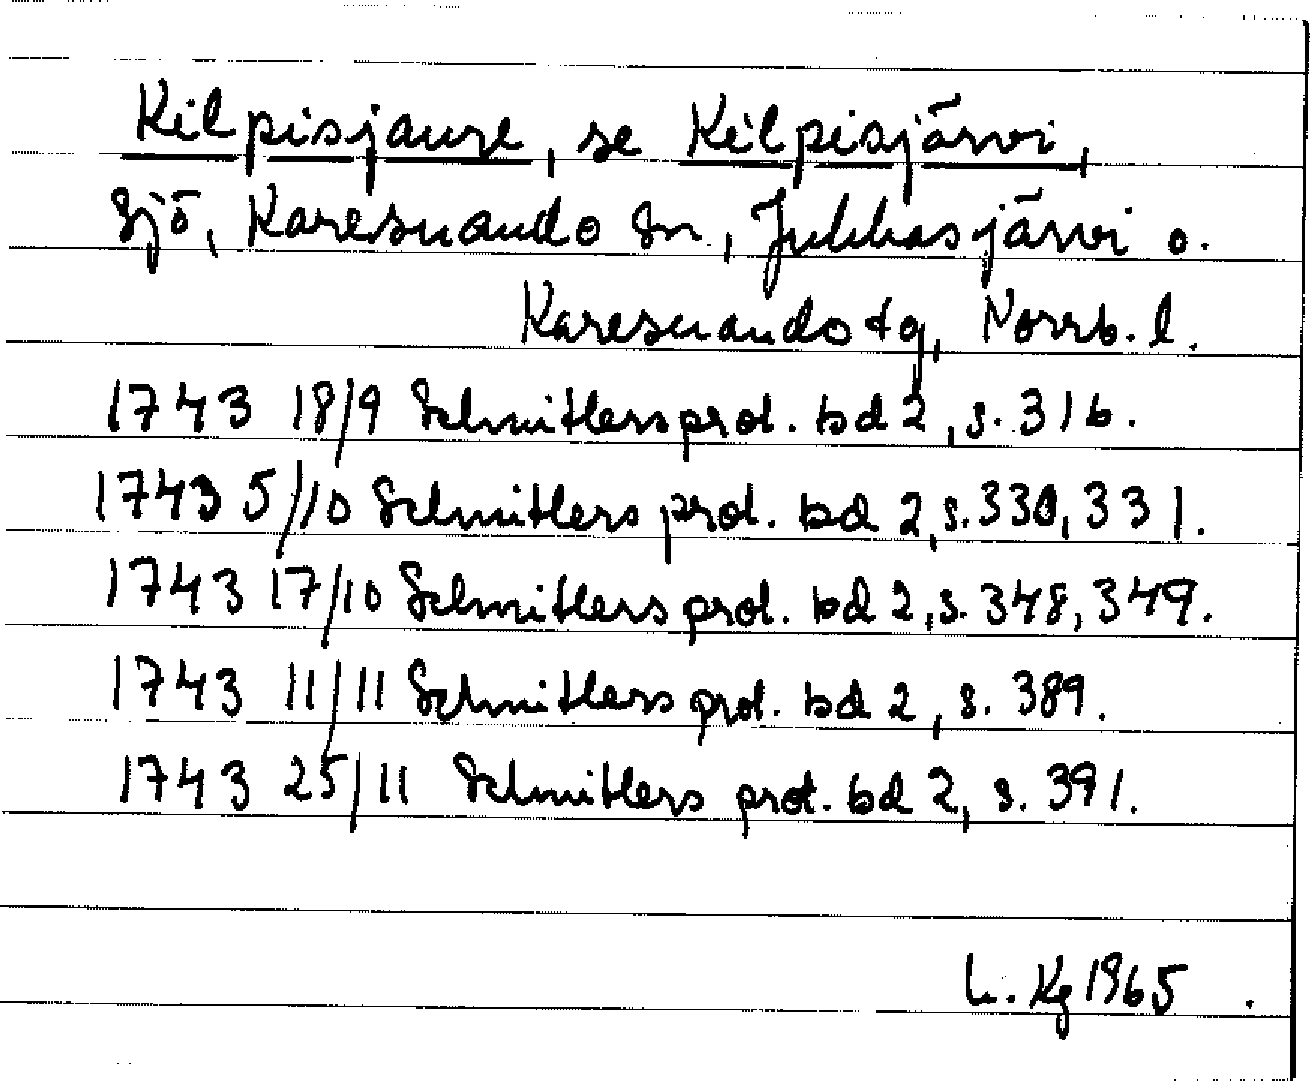 Kilpisjaure, se Kilpisjärvi,
Sjö, Karesuando sn., Jukkasjärvi o.
Karesuando tg, Norrb. l.
1743 18/9 Schnitlers prot. bd 2, s. 316.
1743 5/10 Schnitlers prot. bd 2, s. 330, 331.
1743 17/10 Schnitlers prot. bd 2, s. 348, 349.
1743 11/11 Schnitlers prot. bd 2, s. 389.
1743 25/11 Schnitlers prot. bd 2, s. 391.
L. Kg 1965